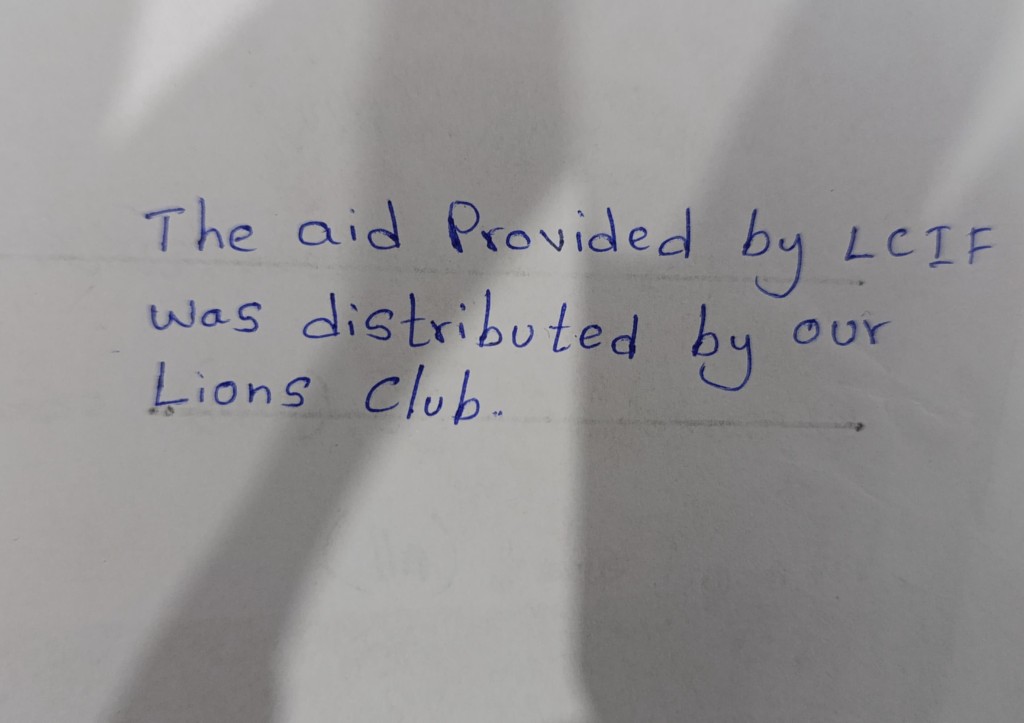 The aid Provided by LCIF
was distributed by our
Lions Club.